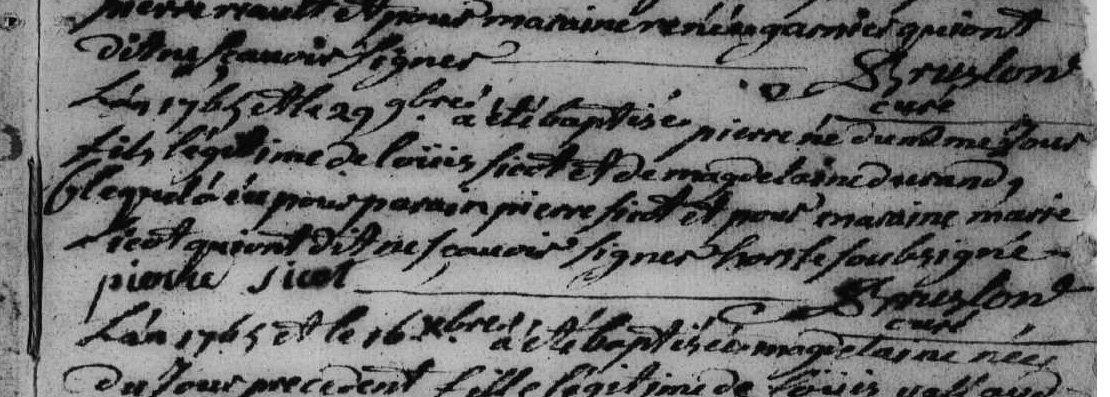 pierre riault et pour maraine renée garnier qui ont
dit ne scavoir signer
Bruslon
curé
L'an 1765 et le 29 9bre a été baptisé pierre né du même Jour
fils légitime de loüis sicot et de magdelaine durand,
lequel a éu pour parain pierre sicot et pour maraine marie
sicot qui ont dit ne scavoir signer hors le soubsigné
pierre sicot
Bruslon
curé
L'an 1765 et le 16 xbre a été baptisée magdelaine née
du Jour precedent fille légitime de loüis